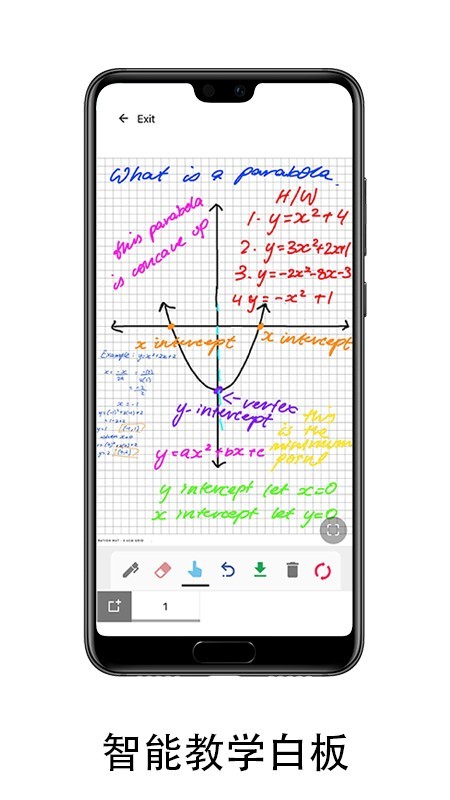 Exit
What is a parabola.
this parabola
is concave up
H/W
1. y=x²+4
2. y=3x²+2x+1
3. y=-2x²-8x-3
4 y=-x²+1
x intercept
x intercept
Example: y=x²+2x+2
<-vertex
y-intercept
this
is the
minimum
point
y=ax²+bx+c
y intercept let x=0
x intercept let y=0
1
智能教学白板